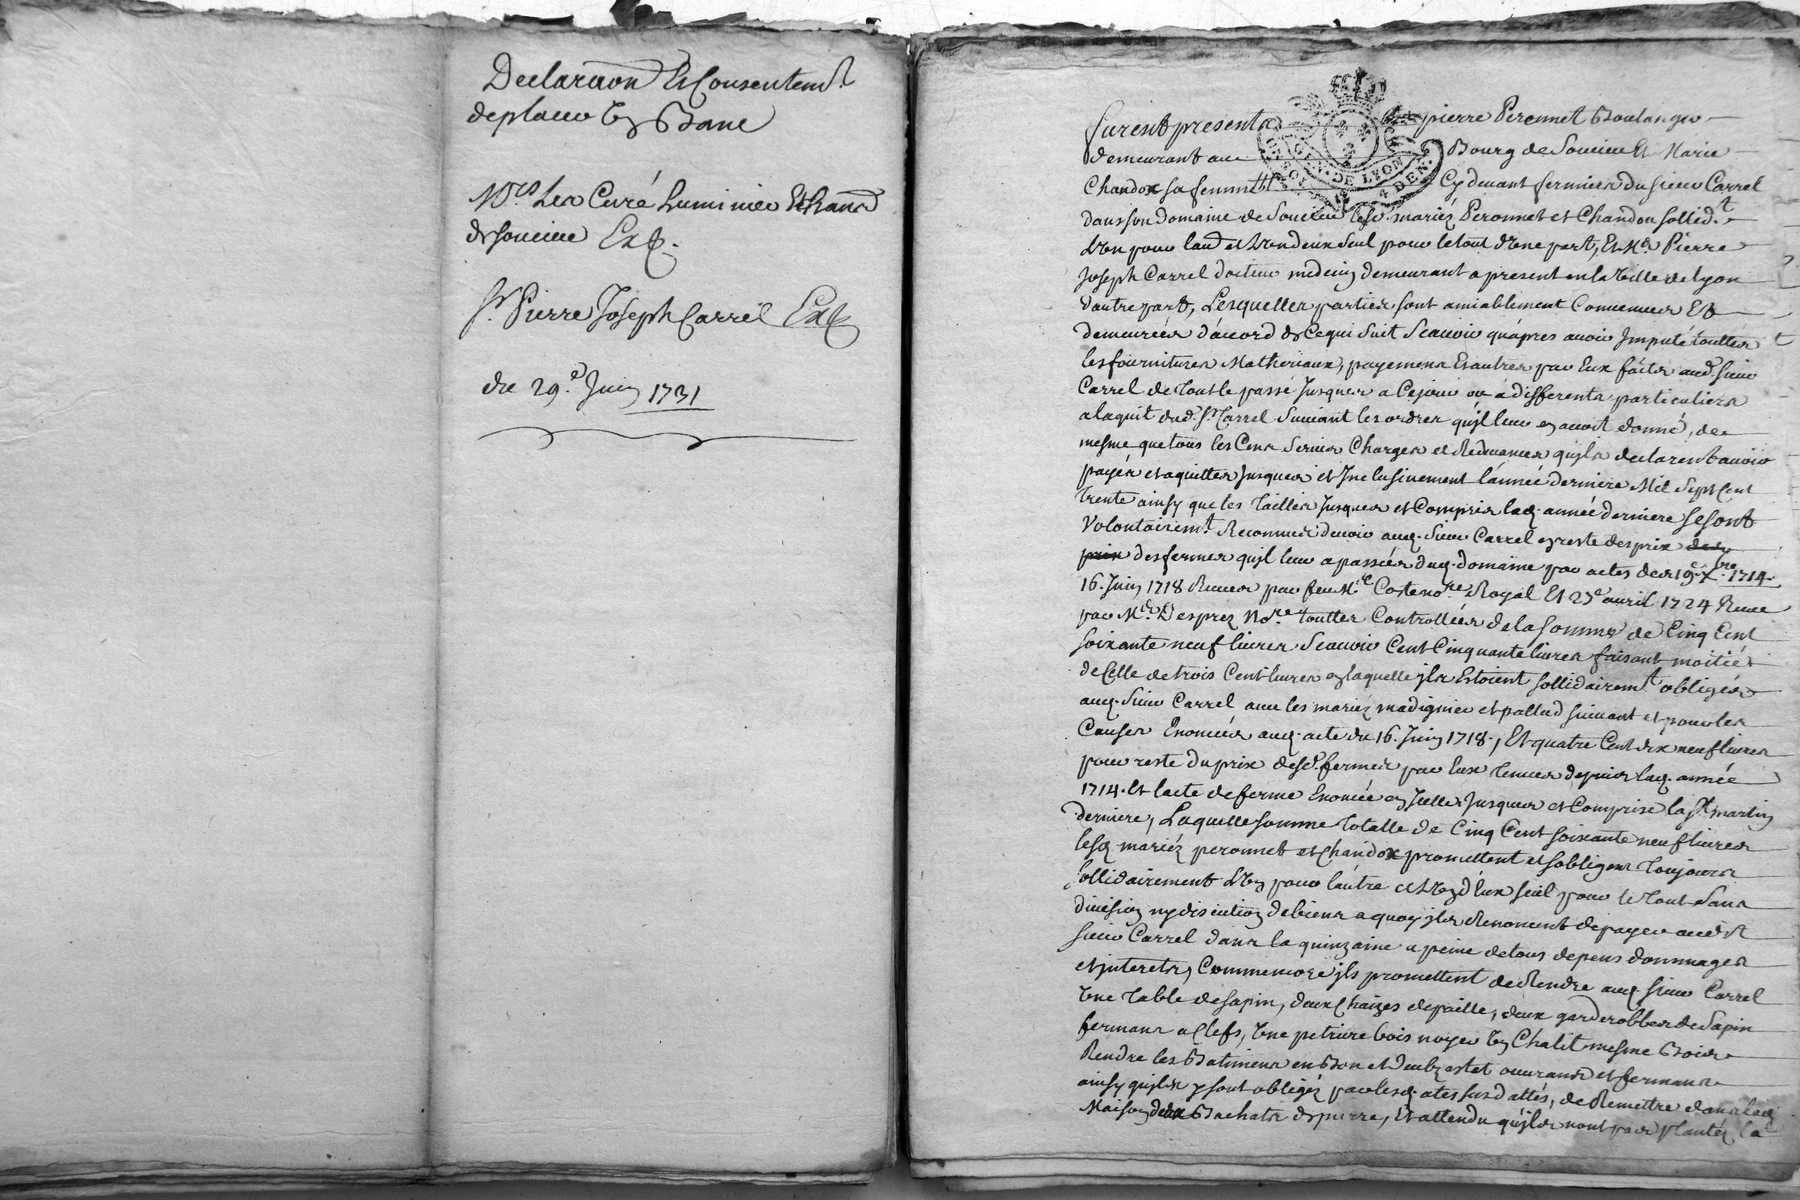 Declaraon Et Consentemt
de place Et Banc
Mrs Les Curé Luminier Et
de Soucieu Ext.
Sr. Pierre Joseph Carrel Ext
du 29.e Juin 1731
furent presents pierre Peronnet Boulanger
demeurant au Bourg de Soucieu Et Marie
Chandon sa femme Cy devant fermiers du sieur Carrel
dans son domaine de Soucieu lesd. mariéz Peronnet et Chandon sollid.t
L'un pour l'au. et L'un deux seul pour le tout d'Une part, Et Mr. Pierre
Joseph Carrel docteur medecin demeurant a present en la Ville de Lyon
d'autre part, Lesquelles parties sont amiablement Convenues Et
demeurées d'acord de Ce qui Suit Scavoir qu'apres avoir Imputé touttes
les fournitures Matheriaux, payemens Et autres par Eux faits aud. sieur
Carrel de tout le passé Jusques a Cejour ou a differents particuliers
a laquit dud. Sr. Carrel Suivant les ordres qu'jl leur en avoit donné, de
mesme que tous les Cens Servis Charges et Redevances qu'jls declarent avoir
payés et aquittes Jusques et Inclusivement l'année derniere Mil Sept Cent
trente ainsy que les Tailles Jusques et Compris lad. année derniere se sont
Volontairemt. Reconnus devoir aud. Sieur Carrel en reste des prix
prix des fermes qu'jl leur a passées dud. domaine par actes des 19.e Xbre 1714.
16. Juin 1718 Receus par feu Me. Coste nore. Royal Et 27e avril 1724 Receu
par Me. Desprez Nore. touttes Controllées de la somme de Cinq Cent
soixante neuf livres Scavoir Cent Cinquante livres faisant moitié
de Celle de trois Cent livres en laquelle jls Estoient sollidairemt. obligés
aud. Sieur Carrel avec les mariéz madignier et pallud suivant et pour les
Causes Enoncées aud. acte du 16. Juin 1718., Et quatre Cent dix neuf livres
pour reste du prix desd. fermes par Eux tenues depuis lad. année
1714. Et l'acte de ferme Enoncée en Icelle Jusques et Comprise la St. martin
derniere, Laquelle somme totalle de Cinq Cent soixante neuf livres
lesd. mariéz peronnet et Chandon promettent et s'obligent toujours
sollidairement L'un pour l'autre et L'un d'Eux seul pour le tout Sans
division ny discution de biens a quoy jls Renoncent de payer audit
sieur Carrel dans la quinzaine a peine de tous depens dommages
et jnterets, Comme encore jls promettent de Rendre aud. sieur Carrel
Une table de sapin, deux Chaizes de paille, deux garderobbes de Sapin
fermans a Clefs, Une petriere bois noyer Un Chalit mesme Bois
Rendre les Batimens en Bon et deub estat ouvrans et fermans
ainsy qu'jls y sont obligéz par lesd. actes susdattés, de Remettre dans lad.
Maison deux Bachats de pierre, Et attendu qu'jls n'ont pas plantéz la